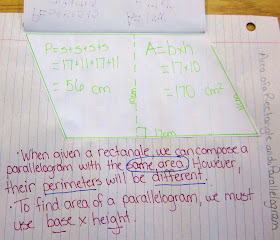 P=s+s+s+s
=17+11+17+11
=56 cm
A=b×h
=17×10
=170 cm²
17cm
·When given a rectangle, we can compose a
parallelogram with the same area. However,
their perimeters will be different.
·To find area of a parallelogram, we must
use base x height.
Area of a Rectangle and Parallelogram